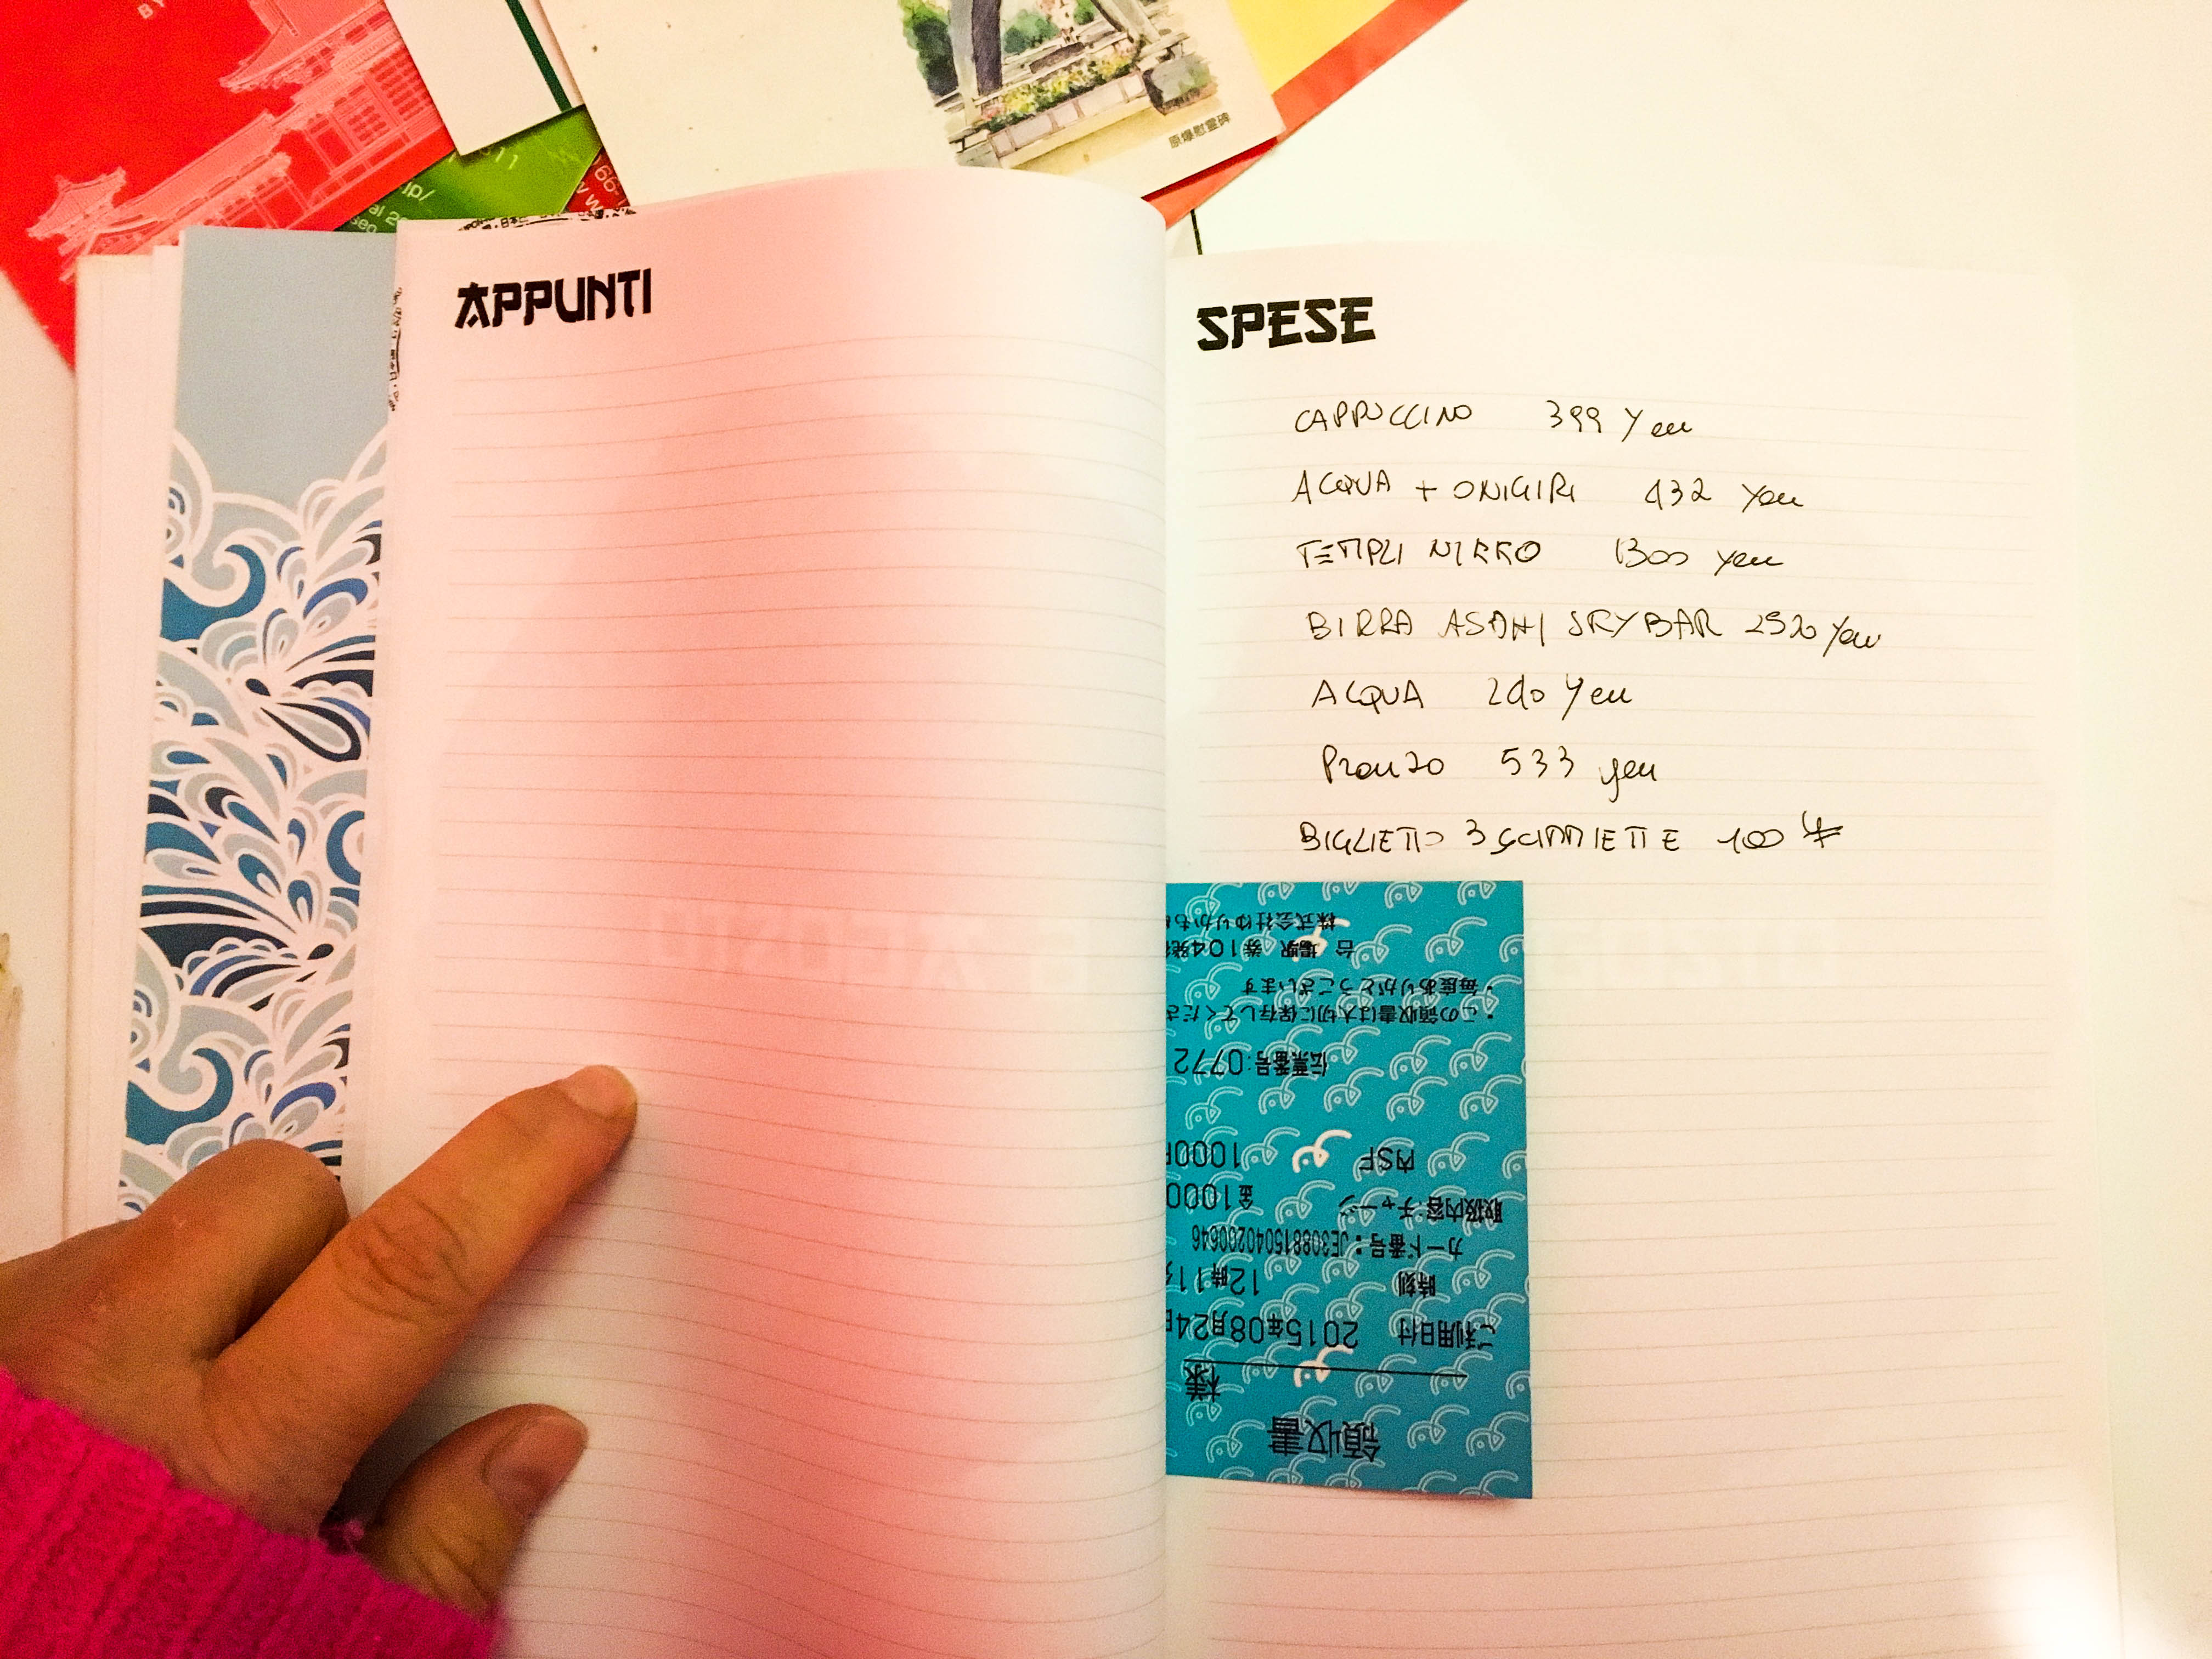 BY
原爆慰霊碑
APPUNTI
SPESE
CAPPUCCINO 399 Yen
ACQUA + ONIGIRI 432 Yen
TEMPLI NIKKO 1300 yen
BIRRA ASAHI SKYBAR 2520 Yen
ACQUA 240 Yen
Pranzo 533 yen
BIGLIETTO 3 SCIMMIETTE 100 ¥
領収書
様
ご利用日付 2015年08月24日
時刻 12時11分
カード番号:JE308815040200646
取扱内容:チャージ 金1000
内SF 1000
伝票番号:0772
・この領収書は大切に保存してくださ
・毎度ありがとうございます
台場駅 券104発行
株式会社ゆりかもめ